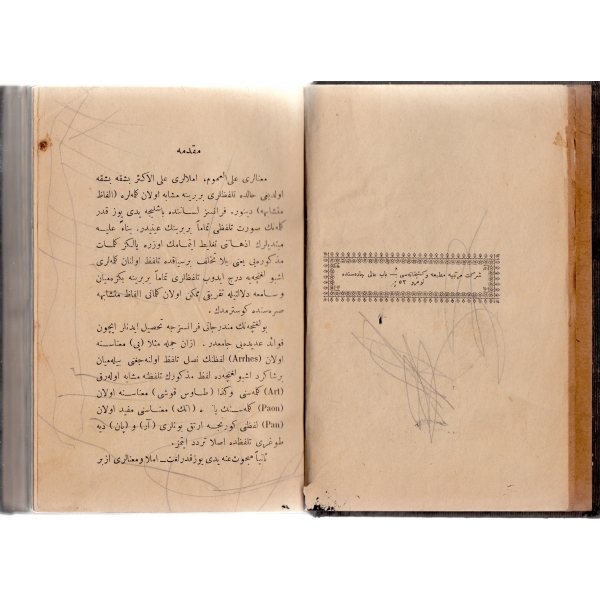 مقدمه
معنالری علی العموم، املالری علی الاکثر بشقه بشقه
اولدیغی حالده تلفظلری بربرینه مشابه اولان کلمه‌لره (الفاظ
متشابهه) دینور. فرانسز لساننده باشلیجه یدی یوز قدر
کلمه‌نك صورت تلفظی تماماً بربرینك عینیدر. بناءً علیه
مبتدیلرك اذهانی تغلیط ایتمامك اوزره یالکز کلمات
مذکوره‌یی یعنی بلا تخلف برسیاقده تلفظ اولنان کلمه‌لری
اشبو لغتچه‌یه درج ایدوب تلفظلری تماماً بربرینه بکزه‌میان
و سامعه دلالتیله تفریقی ممکن اولان کلماتی الفاظ متشابهه
صره‌سنده کوسترمدك.
بو لغتچه‌نك مندرجاتی فرانسزجه تحصیل ایدنلر ایچون
فوائد عدیده‌یی جامعدر. ازان جمله مثلا (پی) معناسنه
اولان (Arrhes) لفظنك نصل تلفظ اولنه‌جغنی بیله‌میان
برشاکرد اشبو لغتچه‌ده لفظ مذکورك تلفظنه مشابه اوله‌رق
(Art) کلمه‌سنی وکذا (طاوس قوشی) معناسنه اولان
(Paon) کلمه‌سنك یاننده (اتك) معناسنی مفید اولان
(Pan) لفظی کورنجه ارتق بونلری (آر) و (پان) دیه
طوغری تلفظده اصلا تردد ایتمز.
ثانیاً مبحوث عنه یدی یوز قدر لغت ــ املا و معنالری ازبر
شرکت مرتبیه مطبعه و کتبخانه‌سی ــ باب عالی جاده‌سنده
نومرو ٥٢